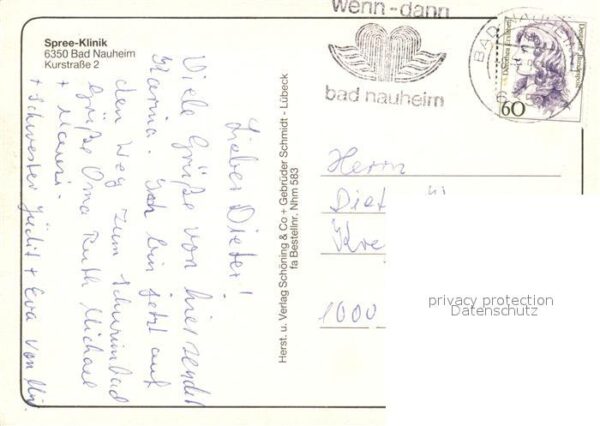 Spree-Klinik
6350 Bad Nauheim
Kurstraße 2
Lieber Dieter!
Viele Grüße von hier sendet
Marina. Ich bin jetzt auf
den Weg zum Schwimmbad
Grüße Oma Ruth Michael
+
+ Schwester Judit + Eva von
Herst. u. Verlag Schöning & Co + Gebrüder Schmidt - Lübeck
fa Bestellnr. Nhm 583
wenn-dann
bad nauheim
BAD NAUHEIM
6
Deutsche Bundespost
60
Herrn
Diet
Kre
1000
privacy protection
Datenschutz